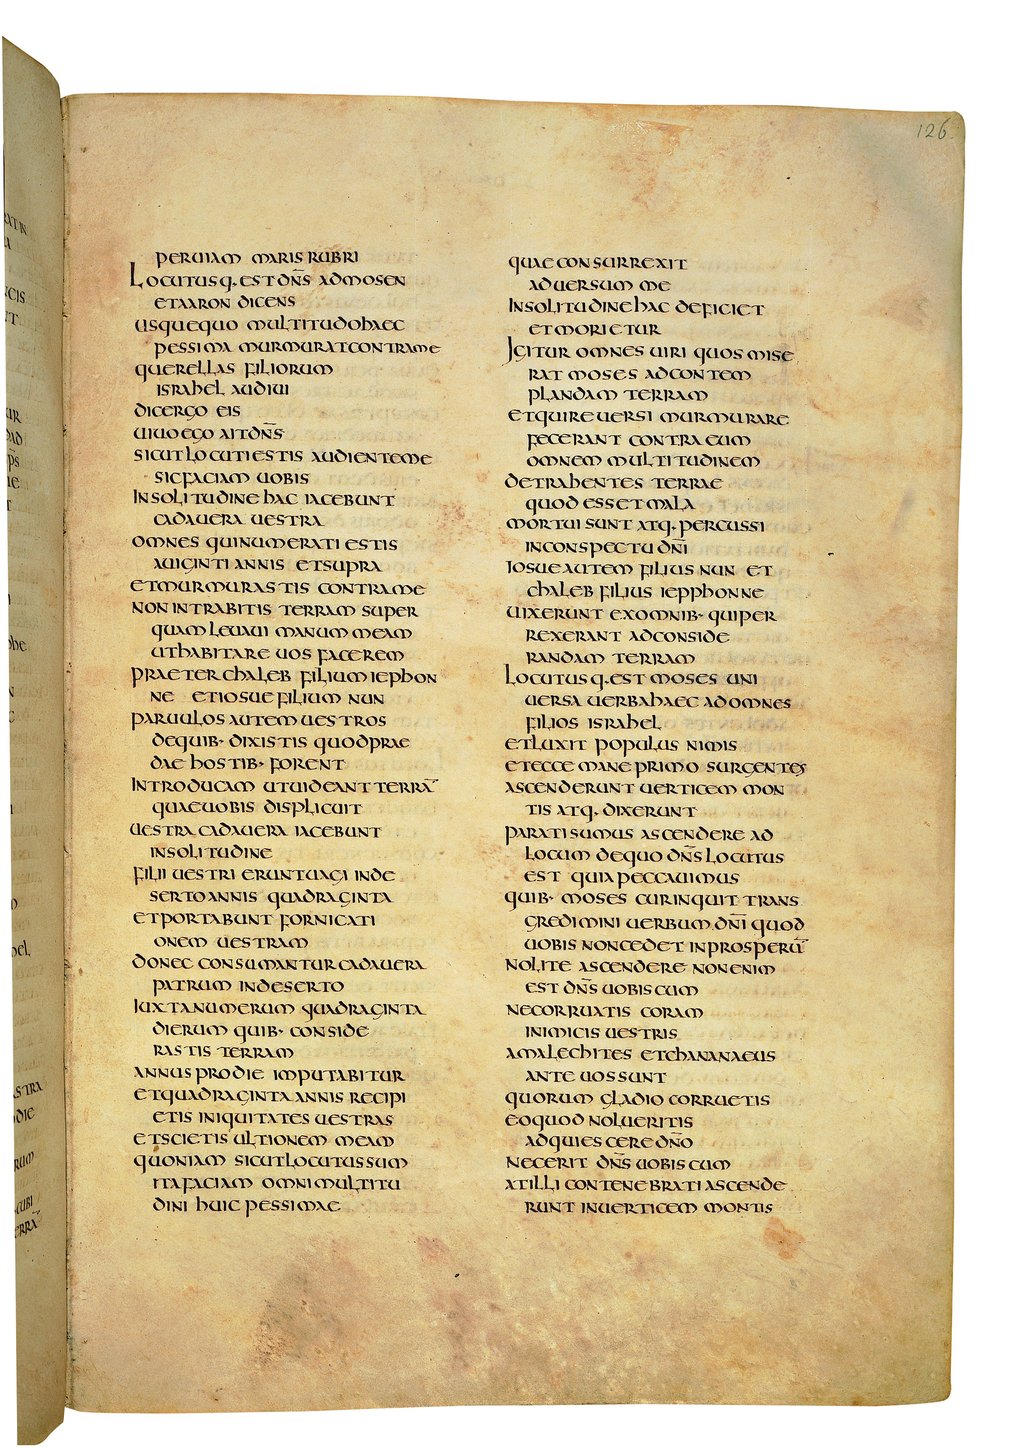 126.
PERUIAM MARIS RUBRI
LOCUTUSQ· EST DN̄S ADMOSEN
ETAARON DICENS
USQUEQUO MULTITUDOHAEC
PESSIMA MURMURATCONTRAME
QUERELLAS FILIORUM
ISRAHEL AUDIUI
DICERGO EIS
UIUOEGO AITDN̄S
SICUTLOCUTIESTIS AUDIENTEME
SICFACIAM UOBIS
INSOLITUDINE HAC IACEBUNT
CADAUERA UESTRA
OMNES QUINUMERATI ESTIS
AUIGINTI ANNIS ETSUPRA
ETMURMURASTIS CONTRAME
NON INTRABITIS TERRAM SUPER
QUAM LEUAUI MANUM MEAM
UTHABITARE UOS FACEREM
PRAETER CHALEB FILIUM IEPHON
NE ETIOSUE FILIUM NUN
PARUULOS AUTEM UESTROS
DEQUIB· DIXISTIS QUODPRAE
DAE HOSTIB· FORENT
INTRODUCAM UTUIDEANT TERRĀ
QUAEUOBIS DISPLICUIT
UESTRA CADAUERA IACEBUNT
INSOLITUDINE
FILII UESTRI ERUNTUAGI INDE
SERTOANNIS QUADRAGINTA
ETPORTABUNT FORNICATI
ONEM UESTRAM
DONEC CONSUMANTUR CADAUERA
PATRUM INDESERTO
IUXTANUMERUM QUADRAGINTA
DIERUM QUIB· CONSIDE
RASTIS TERRAM
ANNUS PRODIE IMPUTABITUR
ETQUADRAGINTA ANNIS RECIPI
ETIS INIQUITATES UESTRAS
ETSCIETIS ULTIONEM MEAM
QUONIAM SICUTLOCUTUSSUM
ITAFACIAM OMNI MULTITU
DINI HUIC PESSIMAE
QUAE CONSURREXIT
ADUERSUM ME
INSOLITUDINE HAC DEFICIET
ETMORIETUR
IGITUR OMNES UIRI QUOS MISE
RAT MOSES ADCONTEM
PLANDAM TERRAM
ETQUIREUERSI MURMURARE
FECERANT CONTRA EUM
OMNEM MULTITUDINEM
DETRAHENTES TERRAE
QUOD ESSET MALA
MORTUI SUNT ATQ· PERCUSSI
INCONSPECTU DN̄I
IOSUE AUTEM FILIUS NUN ET
CHALEB FILIUS IEPPHONNE
UIXERUNT EXOMNIB· QUIPER
REXERANT ADCONSIDE
RANDAM TERRAM
LOCUTUSQ· EST MOSES UNI
UERSA UERBAHAEC ADOMNES
FILIOS ISRAHEL
ETLUXIT POPULUS NIMIS
ETECCE MANE PRIMO SURGENTES
ASCENDERUNT UERTICEM MON
TIS ATQ· DIXERUNT
PARATI SUMUS ASCENDERE AD
LOCUM DEQUO DN̄S LOCUTUS
EST QUIA PECCAUIMUS
QUIB· MOSES CURINQUIT TRANS
GREDIMINI UERBUM DN̄I QUOD
UOBIS NONCEDET INPROSPERŪ
NOLITE ASCENDERE NONENIM
EST DN̄S UOBISCUM
NECORRUATIS CORAM
INIMICIS UESTRIS
AMALECHITES ETCHANANAEUS
ANTE UOS SUNT
QUORUM GLADIO CORRUETIS
EOQUOD NOLUERITIS
ADQUIESCERE DN̄O
NECERIT DN̄S UOBISCUM
ATILLI CONTENEBRATI ASCENDE
RUNT INUERTICEM MONTIS